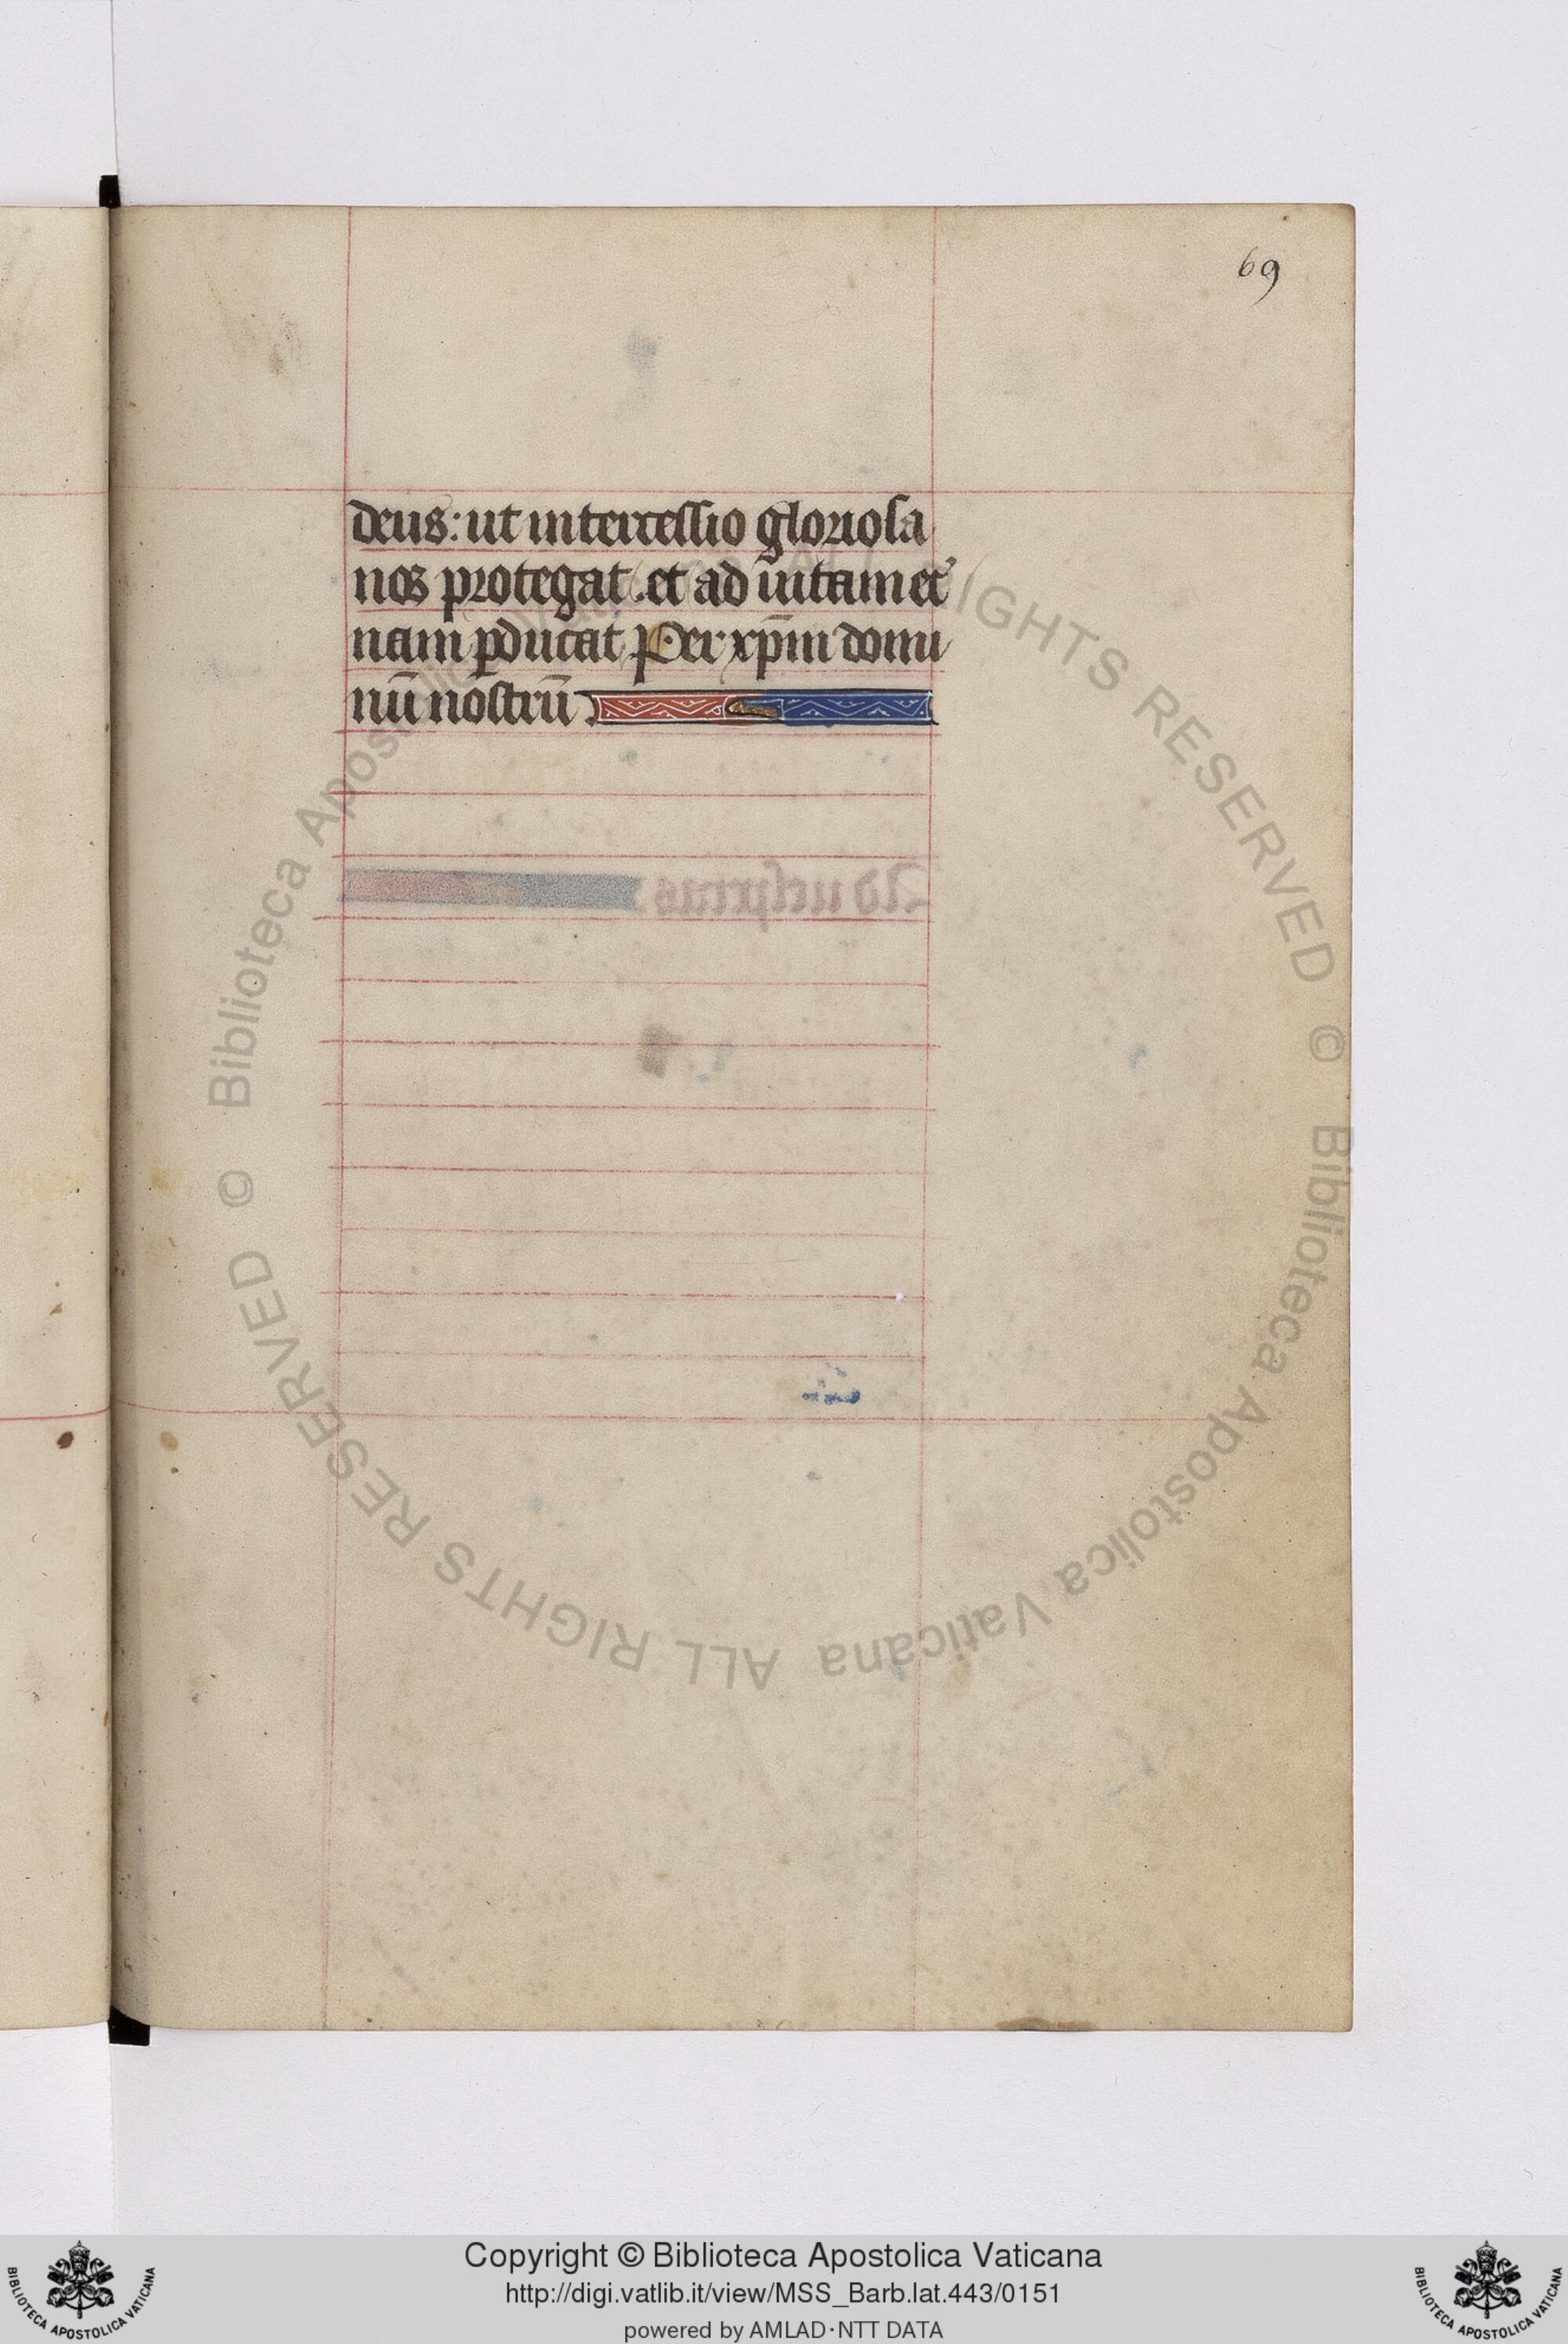 69
deus: ut intercessio gloriosa
nos protegat. et ad uitam et̉
nam ꝑducat Per xp̄m domi
nū nostrū
Ad uesperas
© Biblioteca Apostolica Vaticana ALL RIGHTS RESERVED © Biblioteca Apostolica Vaticana ALL RIGHTS RESERVED
Copyright © Biblioteca Apostolica Vaticana
http://digi.vatlib.it/view/MSS_Barb.lat.443/0151
powered by AMLAD·NTT DATA
BIBLIOTECA APOSTOLICA VATICANA
BIBLIOTECA APOSTOLICA VATICANA